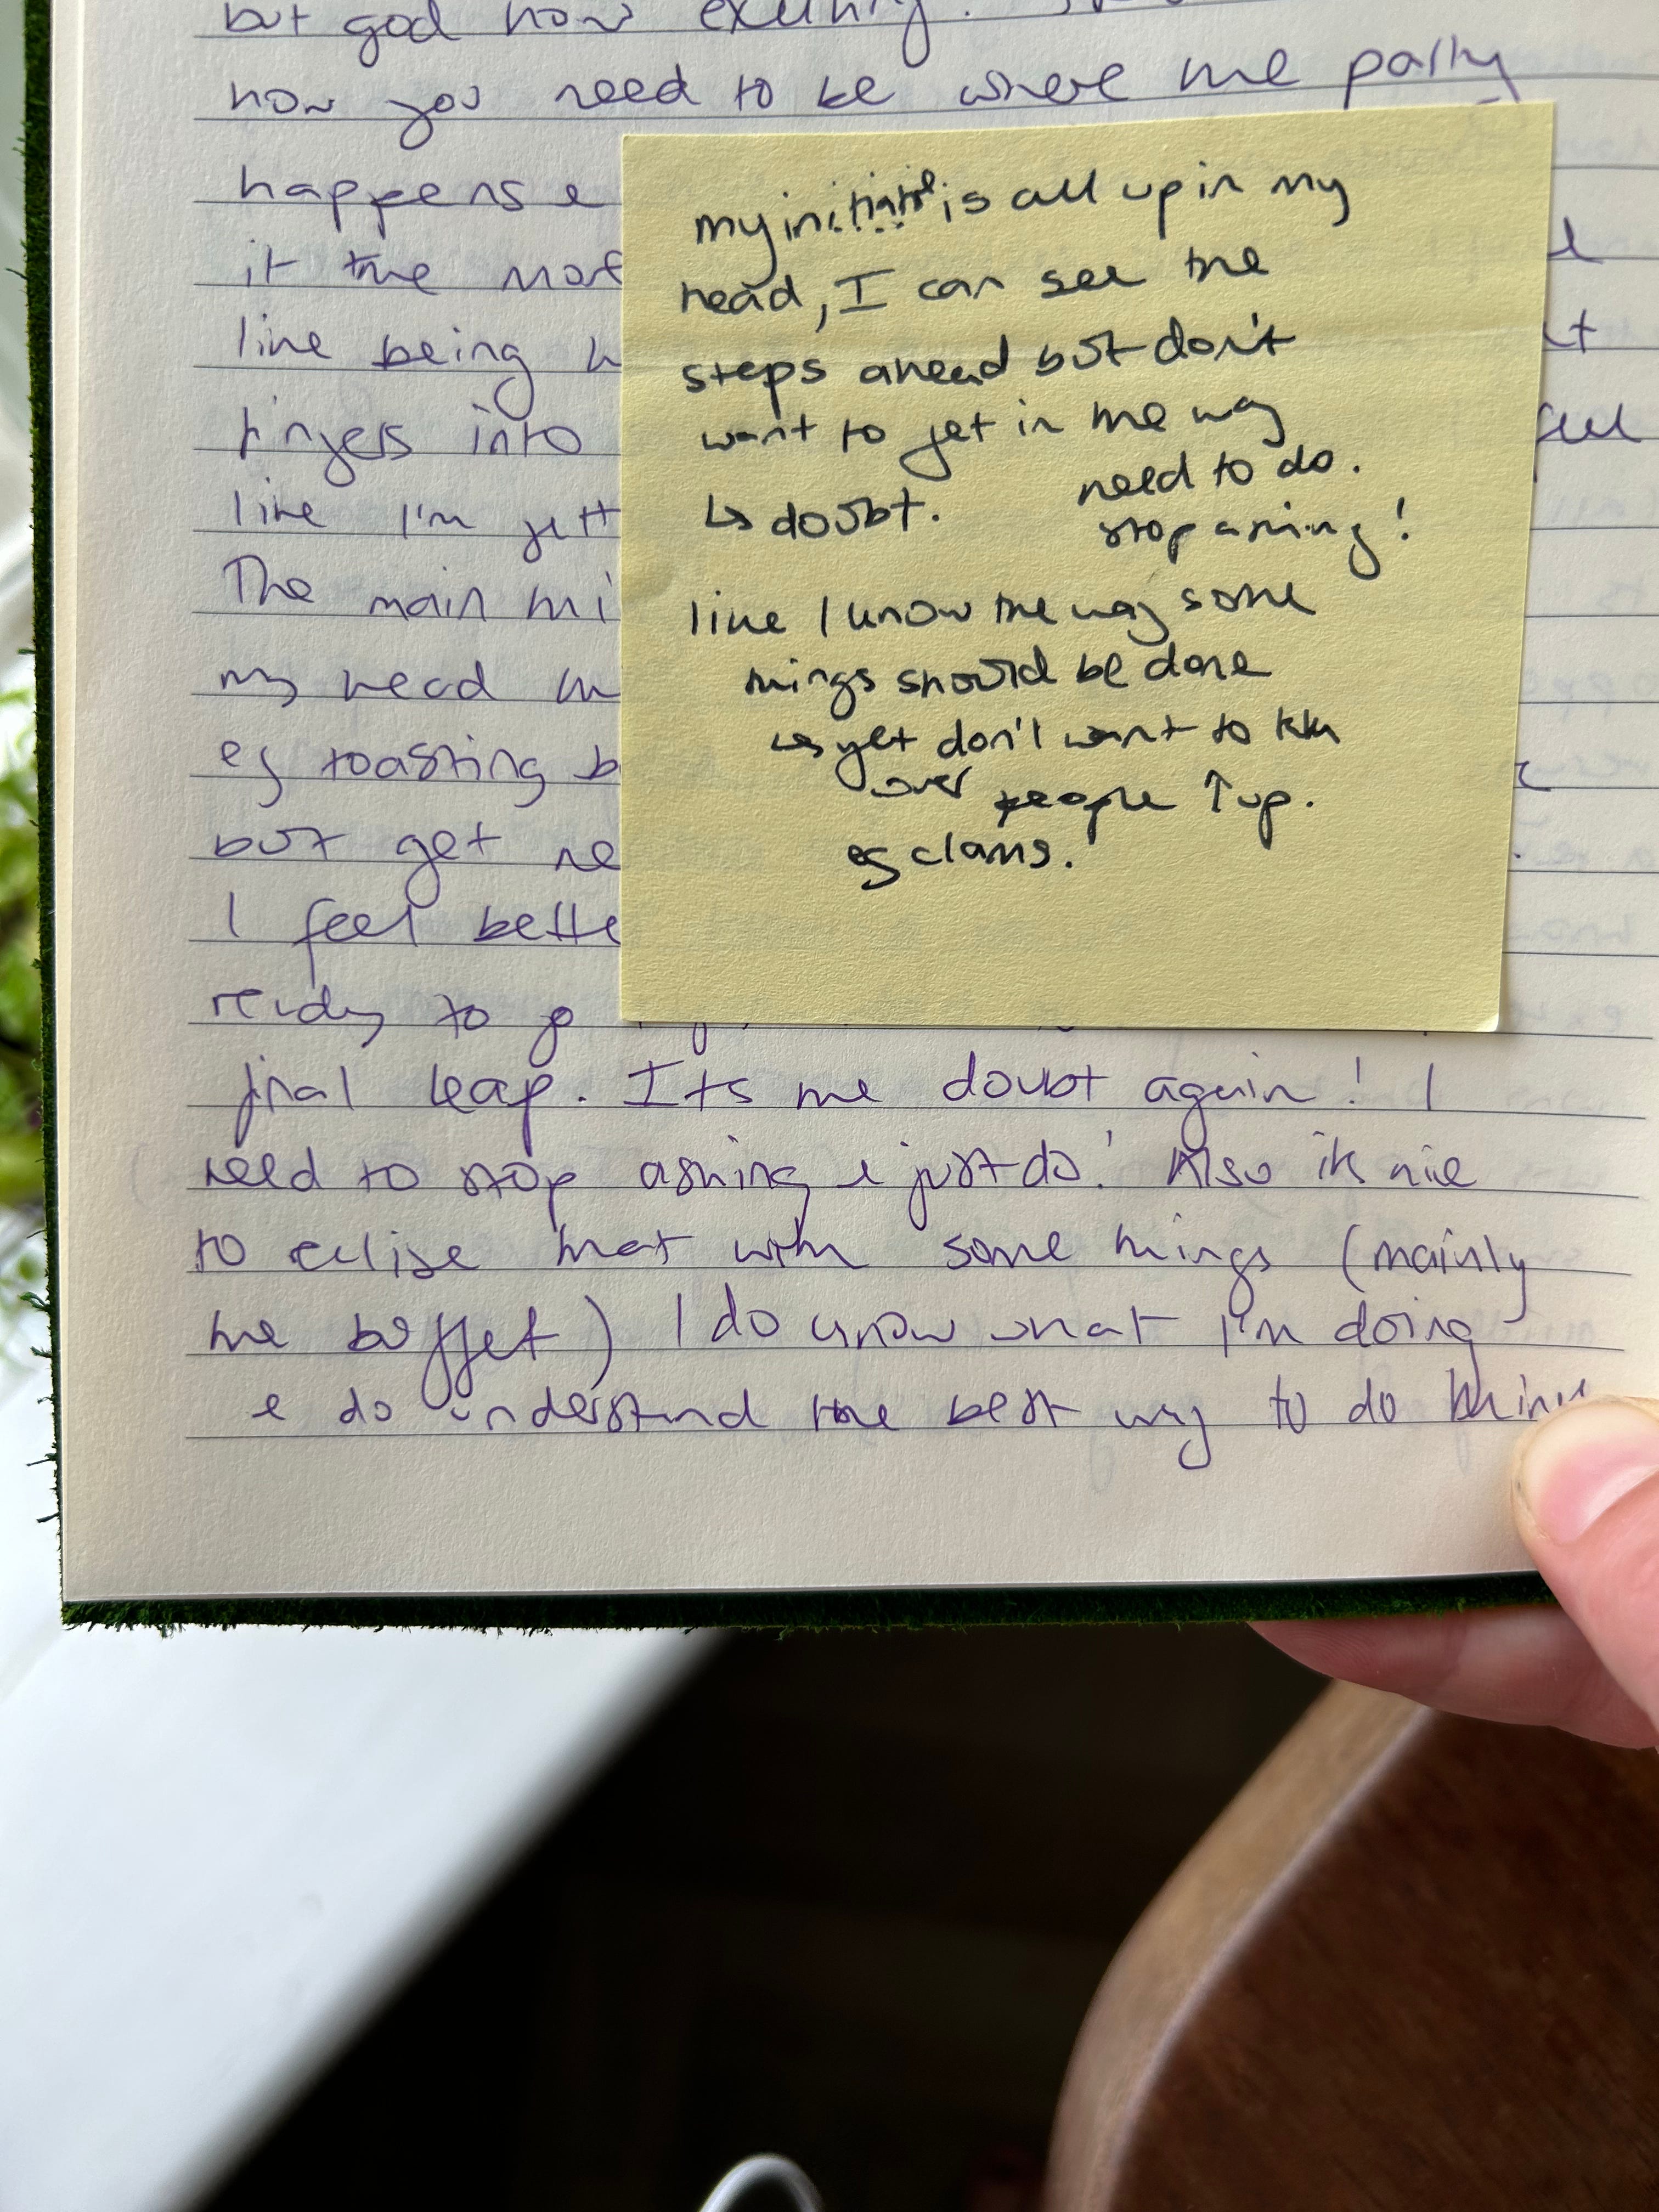 but god how exciting!
how you need to be where the party
happens &
it the most
like being
fingers into
like I'm gett
The main thi
my head
eg toasting b
but get ne
I feel bette
ready to go
final leap. Its the doubt again! I
need to stop asking & just do! Also its nice
to relise that with some things (mainly
the buffet) I do know what I'm doing
& do understand the best way to do things
my initiative is all up in my
head, I can see the
steps ahead but don't
want to get in the way
↳ doubt. need to do.
stop asking!
like I know the way some
things should be done
↳ yet don't want to
over people ↑ up.
eg clams.